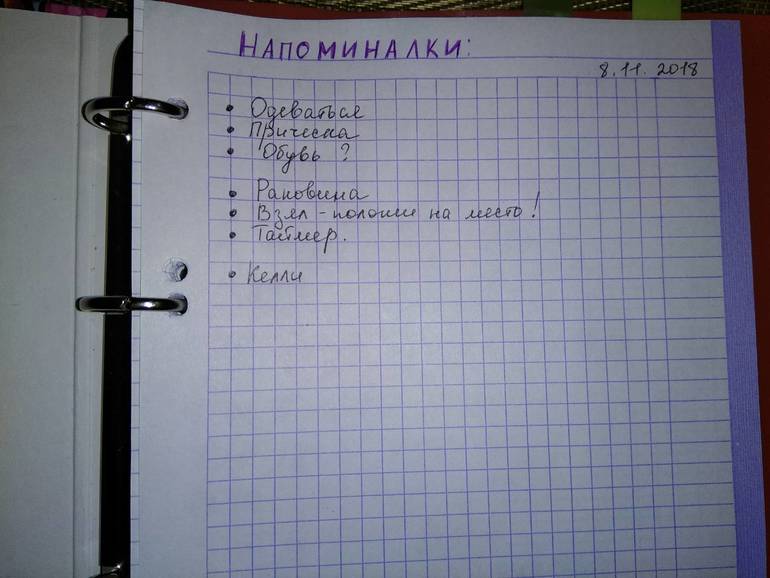 НАПОМИНАЛКИ:
8.11.2018
• Одеваться
• Прическа
• Обувь ?
• Раковина
• Взял - положи на место!
• Таймер.
• Келли